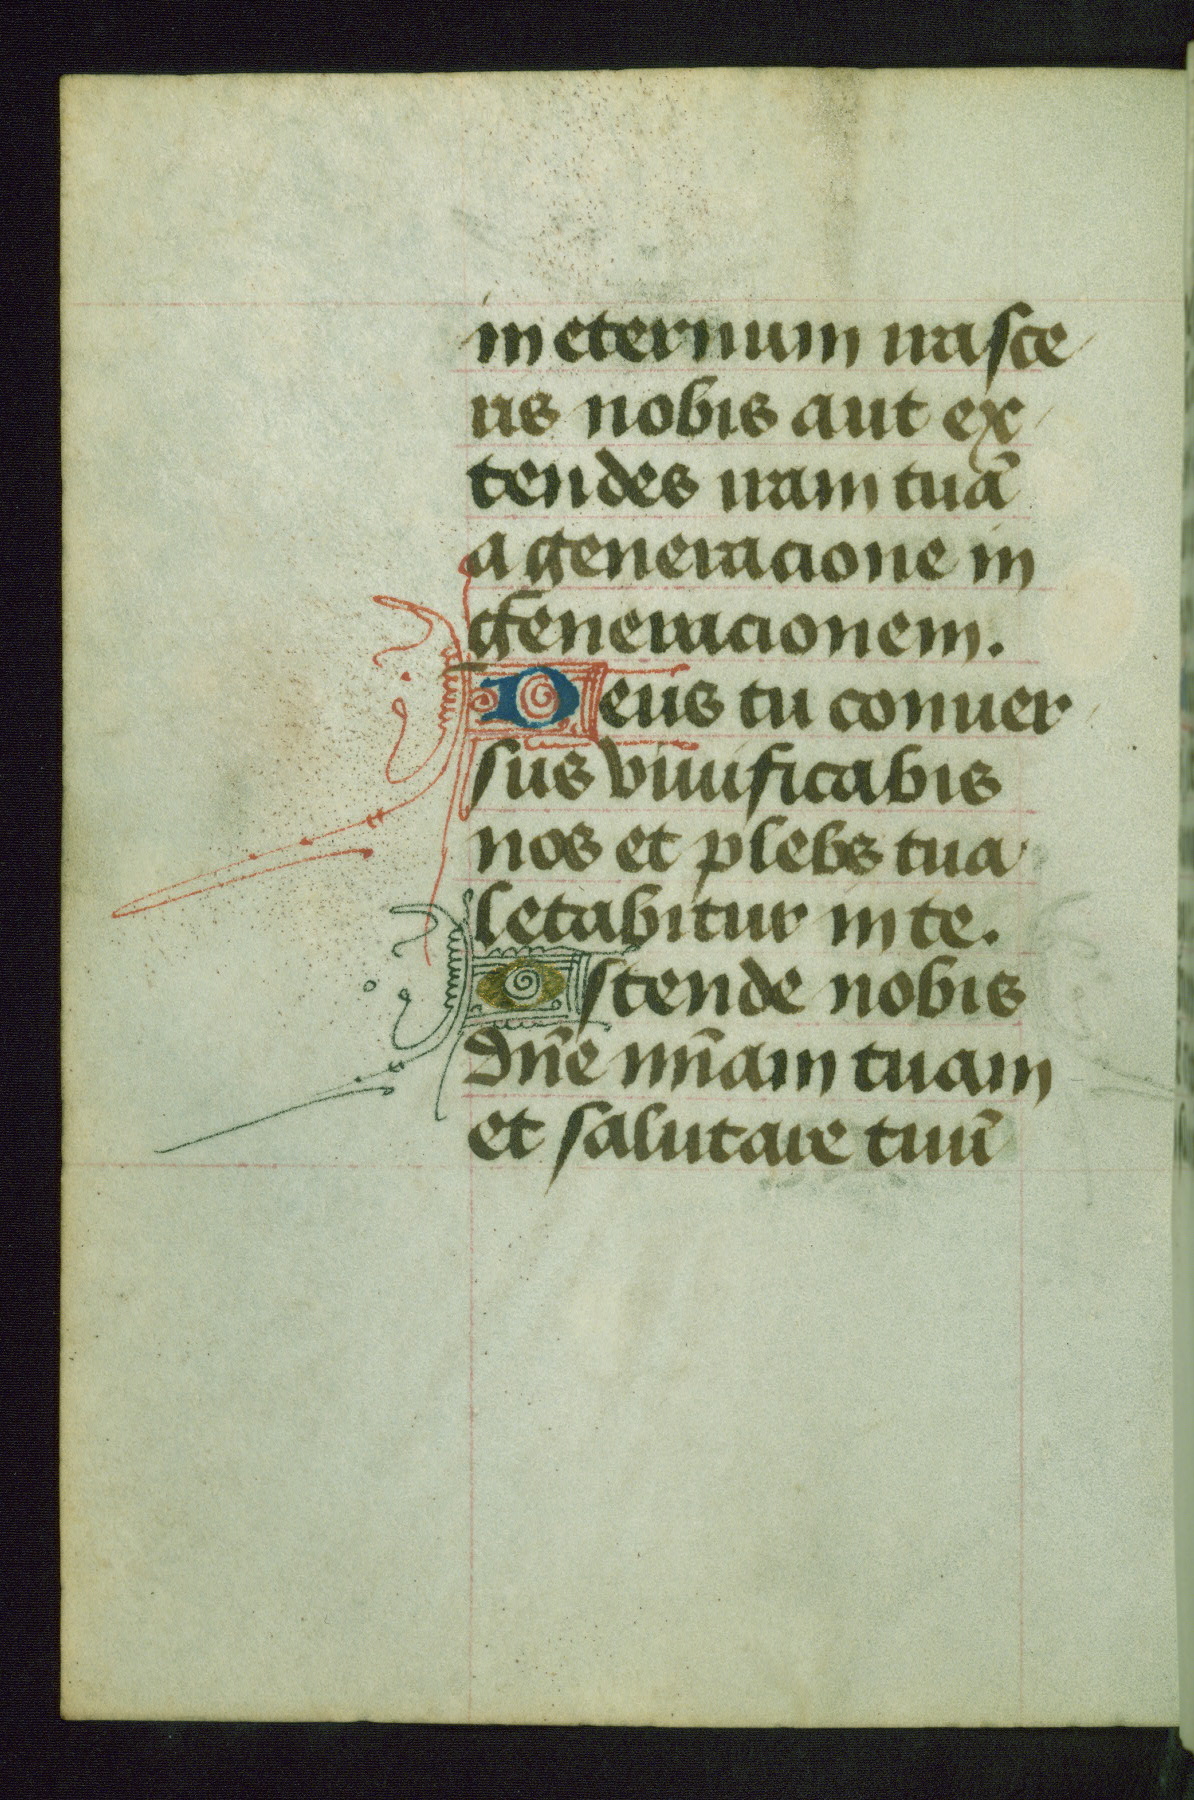 in eternum irasce
ris nobis aut ex
tendes iram tuā
a generacione in
generacionem.
Deus tu conuer
sus viuificabis
nos et plebs tua
letabitur in te.
Ostende nobis
dn̄e mn̄am tuam
et salutare tuū